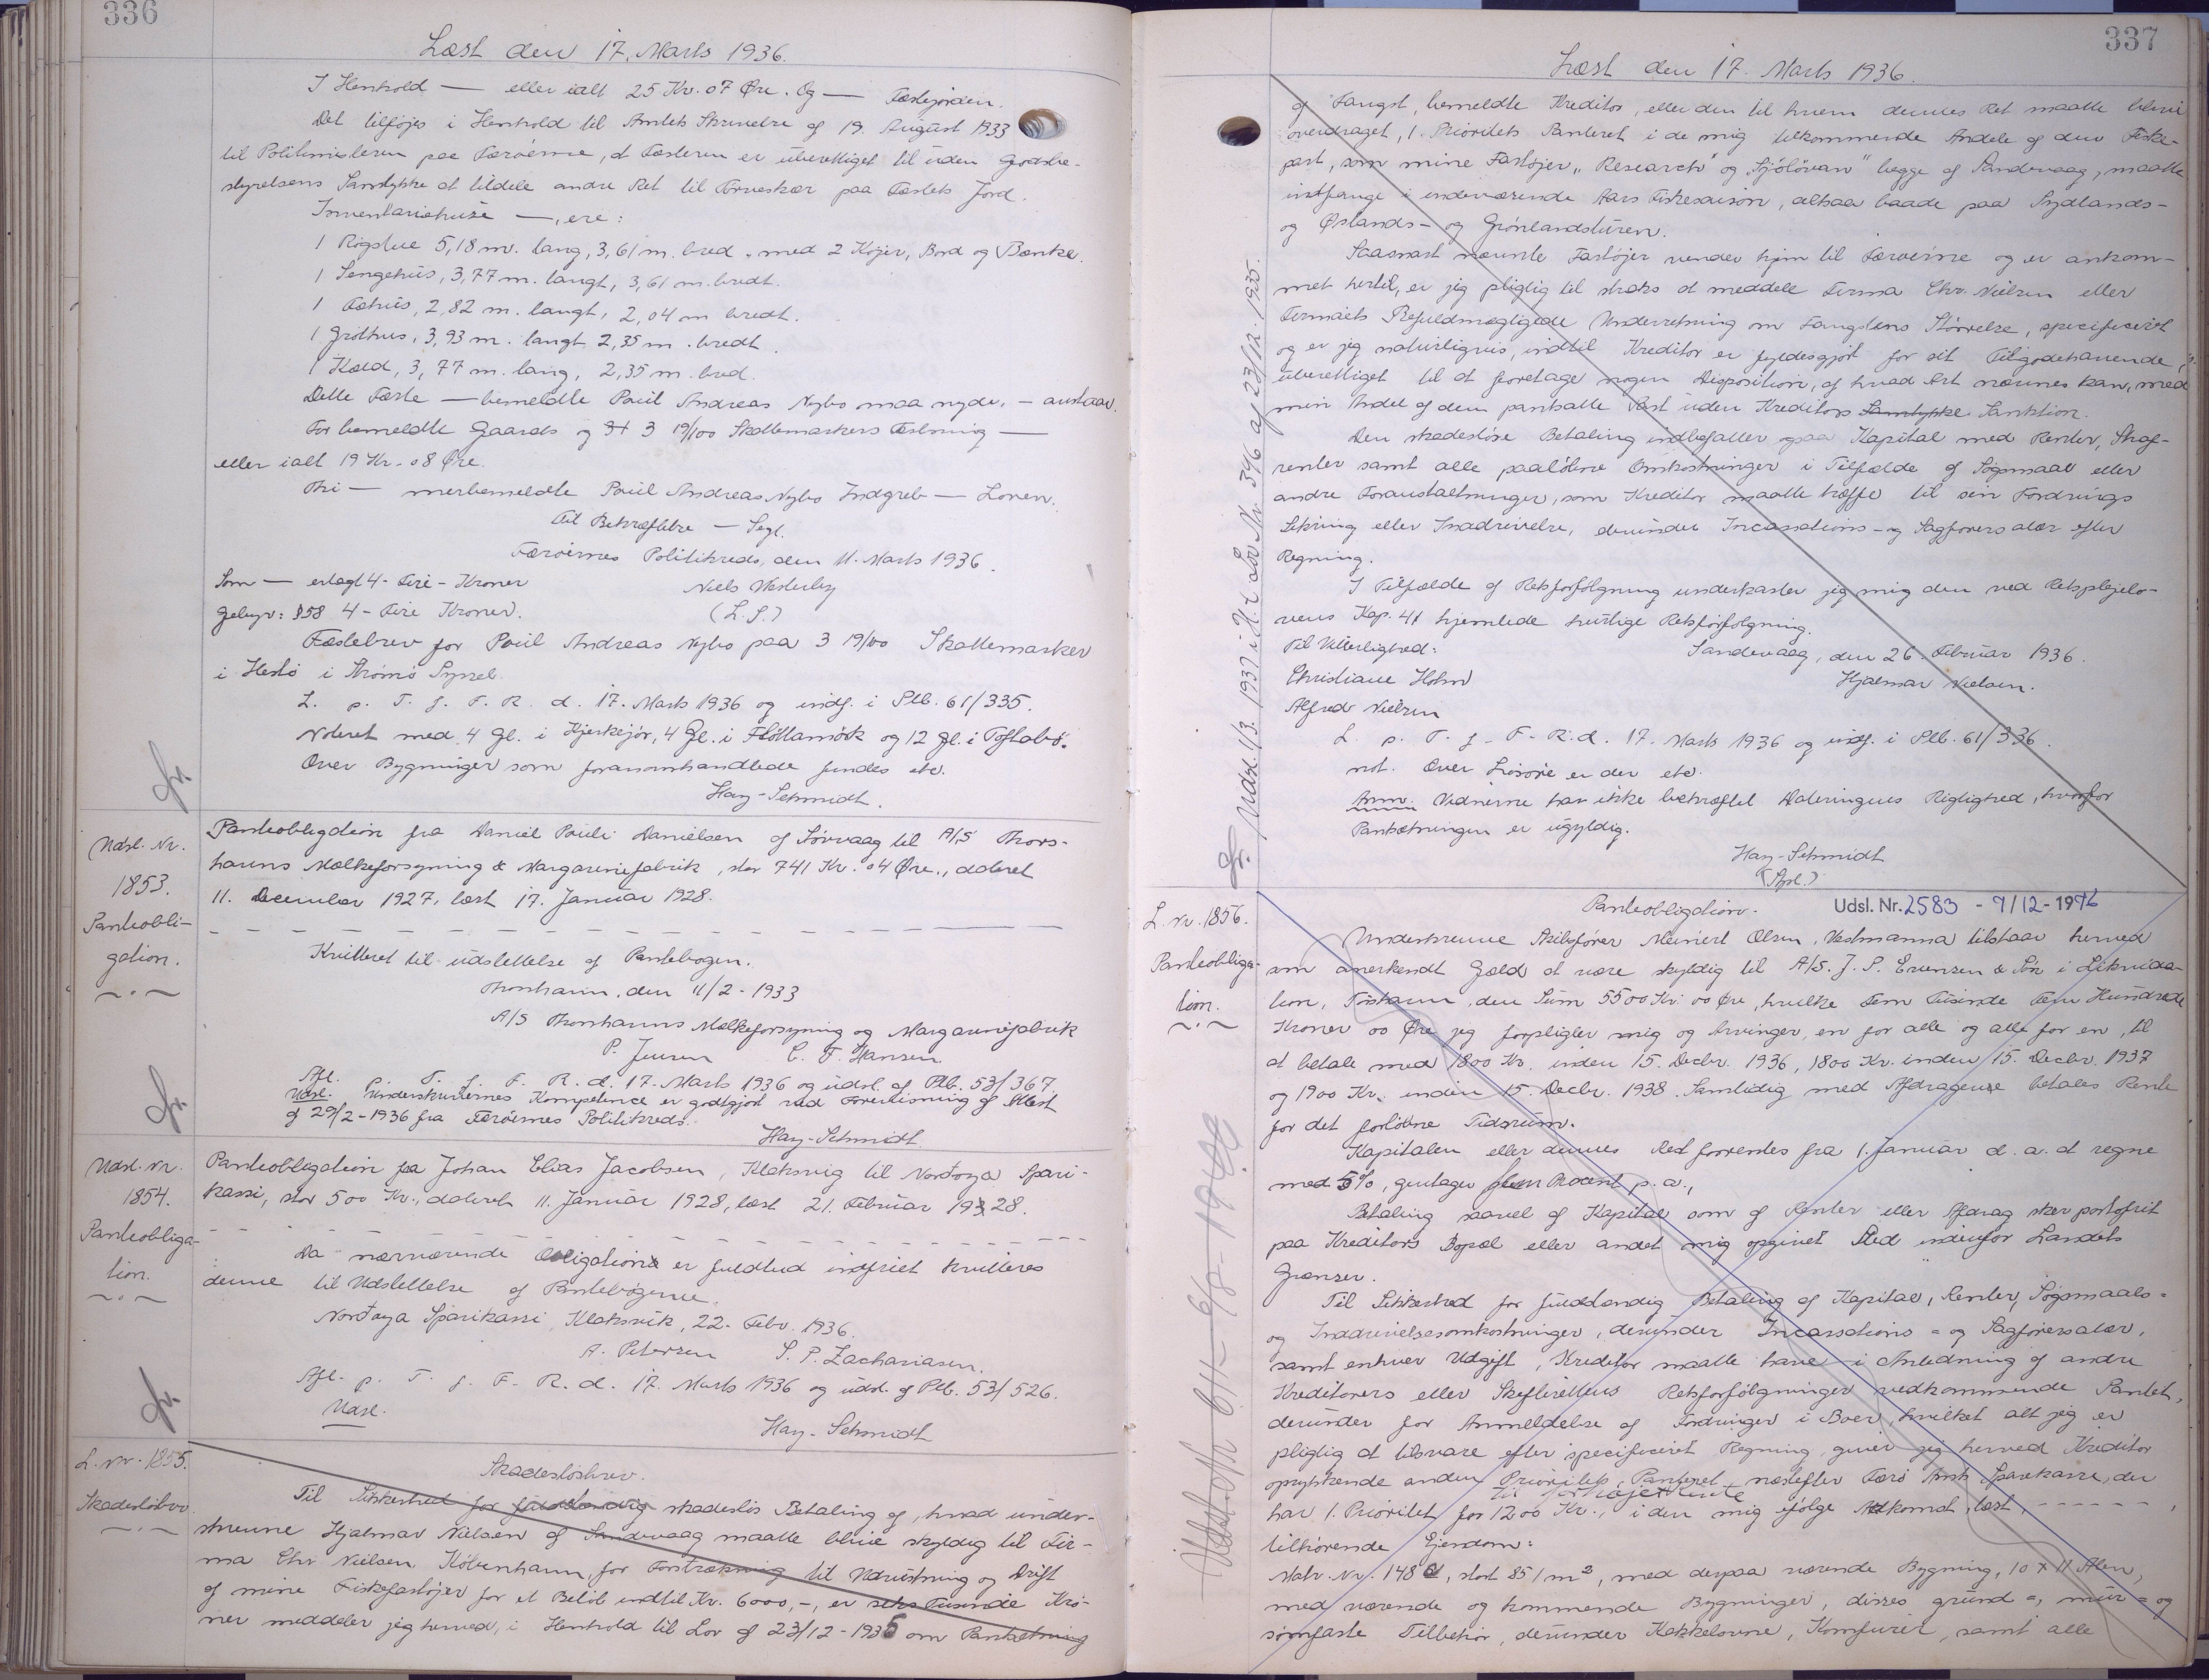 336
Læst den 17. Marts 1936.
I Henhold — eller ialt 25 Kr. 07 Øre. Og — Fæstejorden.
Det tilføjes i Henhold til Amtets Skrivelse af 19. August 1933
til Politimesteren paa Færøerne, at Fæsteren er uberettiget til uden Godsbe-
styrelsens Samtykke at tildele andre Ret til Tørveskær paa Fæstets Jord.
Inventariehuse —, ere:
1 Røgstue 5,18 m. lang, 3,61 m. bred. med 2 Køjer, Bord og Bænke.
1 Sengehus, 3,77 m. langt, 3,61 m. bredt.
1 Fæhus, 2,82 m. langt, 2,04 m bredt.
1 Grothus, 3,93 m. langt 2,35 m. bredt.
1 Kæld, 3,77 m. lang, 2,35 m. bred.
Dette Fæste — bemeldte Poul Andreas Nybo maa nyde, — anstaar.
For bemeldte Gaards og 3 19/100 Skattemarkers Fæstning —
eller ialt 19 Kr. 08 Øre.
Thi — merbemeldte Poul Andreas Nybo Indgreb — Loven.
Til Bekræftelse — Segl.
Færøernes Politikreds, den 11. Marts 1936.
Som — erlagt 4 - Fire - Kroner
Niels Vesterby
Gebyr: §58 4 - Fire Kroner.
(L. S.)
Fæstebrev for Poul Andreas Nybo paa 3 19/100 Skattemarker
i Hestø i Strømø Syssel.
L. p. T. f. F. R. d. 17. Marts 1936 og indf. i Ptb. 61/335.
Noteret med 4 Gl. i Kjerkejør, 4 Gl. i Fløttamørk og 12 Gl. i Toftabø.
Over Bygninger som foranomhandlede findes etc.
Hay-Schmidt.
Udsl. Nr.
1853.
Panteobli-
gation.
Panteobligation fra Daniel Pouli Danielsen af Sørvaag til A/S Thors-
havns Mælkeforsyning & Margarinefabrik, stor 741 Kr. 04 Øre., dateret
11. December 1927, læst 17. Januar 1928.
Kvitteret til udslettelse af Pantebogen.
Thorshavn, den 11/2 - 1933
A/S Thorshavns Mælkeforsyning og Margarinefabrik
P. Jensen C. F. Hansen
Afl. T. f. F. R. d. 17. Marts 1936 og udsl. af Ptb. 53/367.
Udsl. Underskrivernes Kompetence er godtgjort ved Forevisning af Attest
af 29/2 - 1936 fra Færøernes Politikreds.
Hay-Schmidt
Udsl. Nr.
1854.
Panteobliga-
tion.
Panteobligation fra Johan Elias Jacobsen, Klaksvig til Norðoya Spari-
kassi, stor 500 Kr., dateret 11. Januar 1928, læst 21. Februar 1928.
Da nærværende Obligation er fuldtud indfriet kvitteres
denne til Udslettelse af Pantebøgerne.
Norðoya Sparikassi, Klaksvik, 22. Febr. 1936.
A. Petersen S. P. Zachariasen.
Afl. p. T. f. F. R. d. 17. Marts 1936 og udsl. af Ptb. 53/526.
Udsl.
Hay-Schmidt
L. nr. 1855.
Skadesløsbrev
Skadesløsbrev.
Til Sikkerhed for fuldstændig skadesløs Betaling af, hvad under-
skrevne Hjalmar Nielsen af Sandevaag maatte blive skyldig til Fir-
ma Chr Nielsen, København, for Forstrækning til Udrustning og Drift
af mine Fiskefartøjer for et Beløb indtil Kr. 6000,-, er seks Tusinde Kro-
ner meddeler jeg herved, i Henhold til Lov af 23/12-1935 om Pantsætning
337
Læst den 17. Marts 1936.
af Fangst, bemeldte Kreditor, eller den til hvem dennes Ret maatte blive
overdraget, 1. Prioritets Panteret i de mig tilkommende Andele af den Fiske-
part, som mine Fartøjer „Research“ og „Sjólóvan“ begge af Sandevaag, maatte
indfange i indeværende Aars Fiskesaison, altsaa baade paa Sydlands-
og Østlands- og Grønlandsturen.
Saasnart nævnte Fartøjer vender hjem til Færøerne og er ankom-
met hertil, er jeg pligtig til straks at meddele Firma Chr. Nielsen eller
Firmaets Befuldmægtigede Underretning om Fangstens Størrelse, specificeret
og er jeg naturligvis, indtil Kreditor er fyldesgjort for sit Tilgodehavende,
uberettiget til at foretage nogen Disposition, af hvad Art nævnes kan, med
min Andel af den pantsatte Part uden Kreditors Samtykke Sanktion.
Den skadesløse Betaling indbefatter ogsaa Kapital med Renter, Straf-
renter samt alle paaløbne Omkostninger i Tilfælde af Søgsmaal eller
andre Foranstaltninger, som Kreditor maatte træffe til sin Fordrings
Sikring eller Inddrivelse, derunder Incassations- og Sagførersalær efter
Regning.
I Tilfælde af Retsforfølgning underkaster jeg mig den ved Retsplejelo-
vens Kap. 41 hjemlede hurtige Retsforfølgning.
Til Vitterlighed:
Sandevaag, den 26. Februar 1936.
Christiane Holm
Hjalmar Nielsen.
Alfred Nielsen
L. p. T. f. F. R. d. 17. Marts 1936 og indf. i Ptb. 61/336.
not. Over Løsøre er der etc.
Anm. Vidnerne har ikke bekræftet Dateringens Rigtighed, hvorfor
Pantsætningen er ugyldig.
Hay-Schmidt
Udsl. 1/3. 1937 i H. t. Lov Nr. 346 af 23/12. 1935.
L. nr. 1856.
Panteobliga-
tion.
Panteobligation.
Udsl. Nr. 2583 - 9/12-1976
Underskrevne Skibsfører Meinert Olsen, Vestmanna tilstaar herved
som anerkendt Gæld at være skyldig til A/S. J. P. Evensen & Søn i Likvida-
tion, Tórshavn, den Sum 5500 Kr. 00 Øre, hvilke Fem Tusinde Fem Hundrede
Kroner 00 Øre jeg forpligter mig og Arvinger, en for alle og alle for en, til
at betale med 1800 Kr. inden 15. Decbr. 1936, 1800 Kr. inden 15. Decbr. 1937
og 1900 Kr. inden 15. Decbr. 1938. Samtidig med Afdragene betales Rente
for det forløbne Tidsrum.
Kapitalen eller dennes Rest forrentes fra 1. Januar d. a. at regne
med 5%, gentager fem Procent p. a.,
Betaling saavel af Kapital som af Renter eller Afdrag sker portofrit
paa Kreditors Bopæl eller andet mig opgivet Sted indenfor Landets
Grænser.
Til Sikkerhed for fuldstændig Betaling af Kapital, Renter, Søgsmaals-
og Inddrivelsesomkostninger, derunder Incassations- og Sagførersalær,
samt enhver Udgift, Kreditor maatte have i Anledning af andre
Kreditorers eller Skifterettens Retsforfølgninger vedkommende Pantet,
derunder for Anmeldelse af Fordringer i Boer, hvilket alt jeg er
pligtig at tilsvare efter specificeret Regning, giver jeg herved Kreditor
oprykkende anden Prioritets Panteret næstefter Færø Amts Sparekasse, der
til forhøjet Rente
har 1. Prioritet for 1200 Kr., i den mig ifølge Adkomst, læst, - - - - - - ,
tilhørende Ejendom:
Matr. Nr. 148 d, stort 851 m², med derpaa værende Bygning, 10 x 11 Alen,
med værende og kommende Bygninger, disses grund-, mur- og
sømfaste Tilbehør, derunder Kakkelovne, Komfurer, samt alle